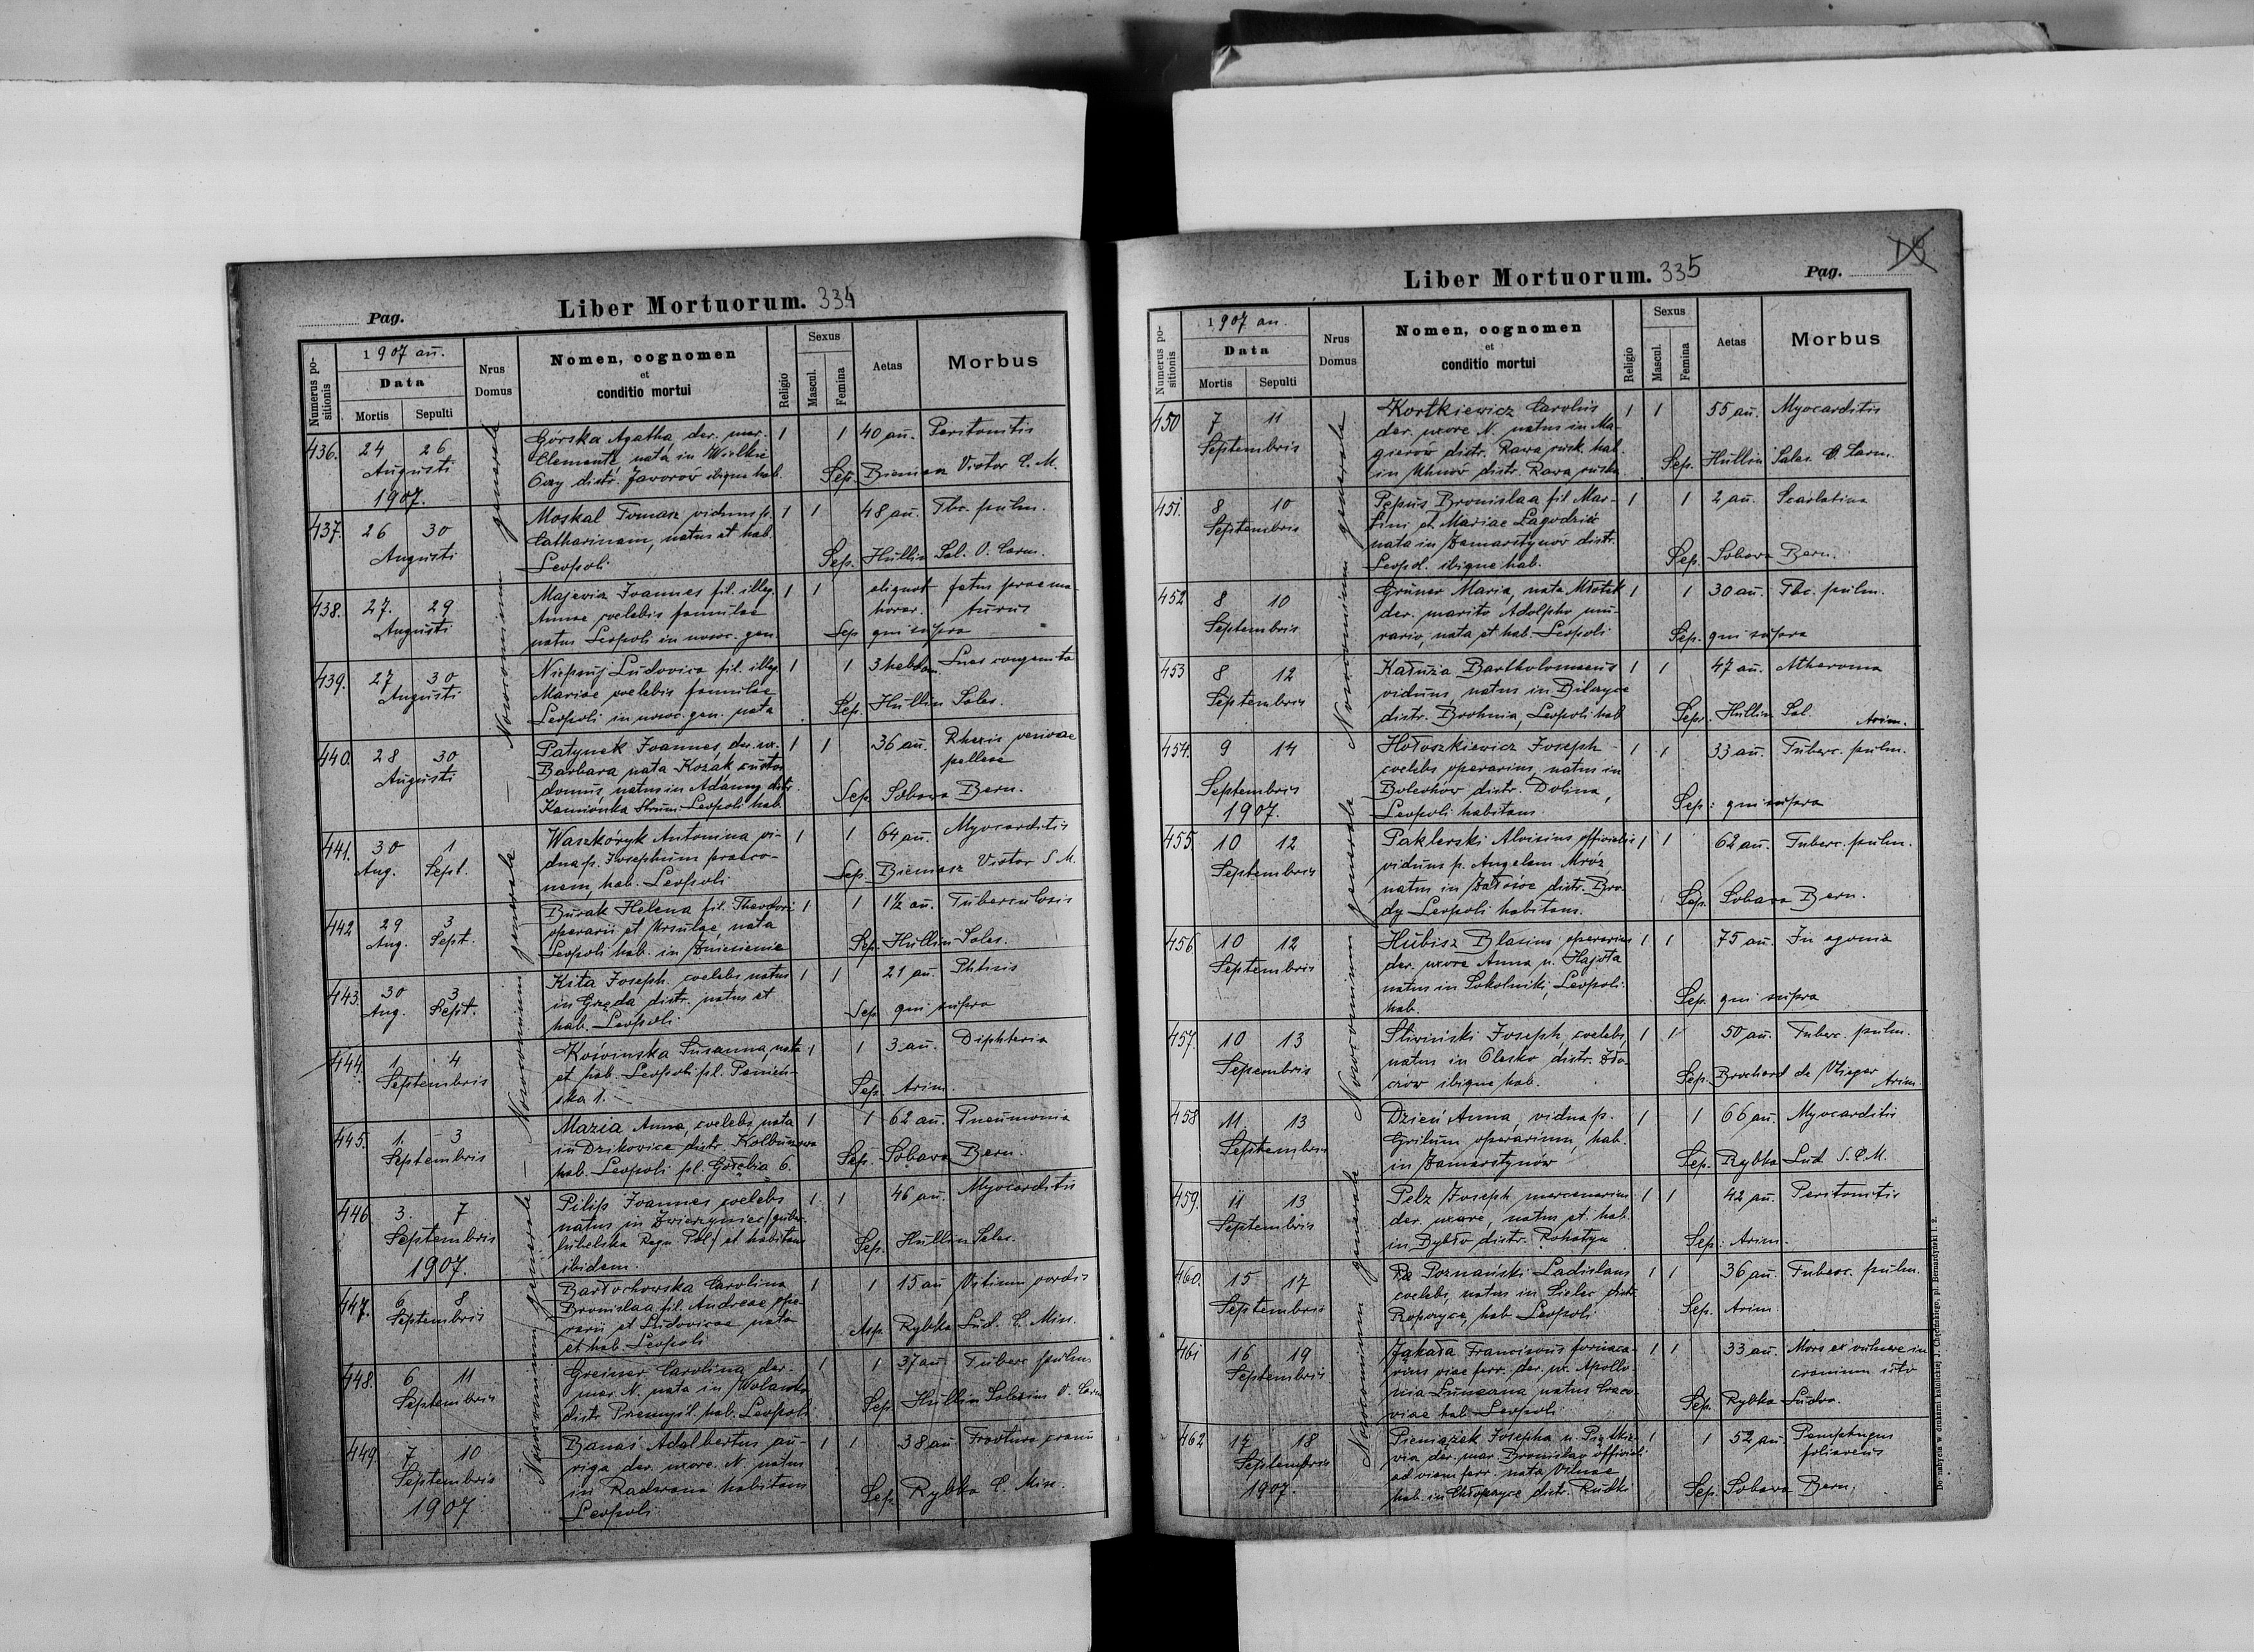 Pag.
Liber Mortuorum. 334
Numerus positionis
1907 an̄.
Data
Mortis
Sepulti
Nrus Domus
Nomen, cognomen
et
conditio mortui
Religio
Sexus
Mascul.
Femina
Aetas
Morbus
Nosocomium generale — Nosocomium generale — Nosocomium generale
436. 24 26 Augusti 1907.
Górska Agatha, der. mar. 1 1 40 an̄. Peritonitis
Clemente nata in Wielkie
Oczy distr. Jaworów ibique hab. Sep. Biemasz Victor C. M.
437. 26 30 Augusti
Moskal Tomasz viduus p. 1 1 48 an̄. Tbc. pulm.
Catharinam, natus et hab.
Leopoli Sep. Hullin Sal. O. Carm.
438. 27. 29 Augusti
Majewicz Joannes fil. illeg. 1 1 aliquot fetus praema-
Annae coelebis famulae horar. turus
natus Leopoli in nosoc. gen. Sep qui supra
439. 27 30 Augusti
Ludovica fil. illeg. 1 1 3 hebdom. Lues congenita
Mariae coelebis famulae
Leopoli in nosoc. gen. nata Sep. Hullin Sales.
440. 28 30 Augusti
Patynek Joannes, der. ux. 1 1 36 an̄. Rhexis
Barbara nata Kozak custos
domus, natus in Adamy distr.
Kamionka Strum. Leopoli hab. Sep. Sobawa Bern.
441. 30 Aug. 1 Sept.
Waszkóryk Antonina vi- 1 1 64 an̄. Myocarditis
dua p. Josephum praeco-
nem, hab. Leopoli Sep. Biemasz Victor S M.
442 29 Aug. 3 Sept.
Burak Helena fil. Theodori 1 1 1½ an̄. Tuberculosis
operarii et Ursulae, nata
Leopoli hab. in Zniesienie Sep. Hullin Sales.
443. 30 Aug. 3 Sept.
Kita Joseph. coelebs natus 1 1 21 an̄. Phtisis
in Grzęda distr. natus et
hab. Leopoli Sep. qui supra
444. 1. 4 Septembris
Susanna, nata 1 1 3 an̄. Diphteria
et hab. Leopoli pl. Panień-
ska 1. Sep. Arim.
445. 1. 3 Septembris
Mazia Anna, coelebs, nata 1 1 62 an̄. Pneumonia
in Dzikowice distr. Kolbuszowa
hab. Leopoli pl. Gołębia 6. Sep. Sobawa Bern.
446. 3. 7 Septembris 1907.
Pilip Joannes coelebs 1 1 46 an̄. Myocarditis
natus in Zwierzyniec (guber.
lubelska Regn. Pol.) et habitans
ibidem. Sep. Hullin Sales.
447. 6 8 Septembris
Bartochowska Carolina 1 1 15 an̄ Vitium cordis
Bronislaa fil. Andreae ope-
rarii et Ludovicae nata
et hab. Leopoli Asp. Rybka Lud. C. Miss.
448. 6 11 Septembris
Greiner Carolina der. 1 1 37 an̄ Tuberc pulm
mar. N. nata in Wolawka
distr. Przemyśl. hab. Leopoli Sep. Hullin Salesius O. Carm
449. 7 10 Septembris 1907.
Banaś Adalbertus au- 1 1 38 an̄ Fractura cranii
riga der. uxore. N. natus
in Radwana habitans
Leopoli Sep. Rybka C. Miss.
Liber Mortuorum. 335
Pag. 19
Numerus positionis
1907 an.
Data
Mortis
Sepulti
Nrus Domus
Nomen, cognomen
et
conditio mortui
Religio
Sexus
Mascul.
Femina
Aetas
Morbus
Nosocomium generale Nosocomium generale Nosocomium generale Nosocomium generale
450 7 11 Septembris
Kortkiewicz Carolus 1 1 55 an̄. Myocarditis
der. uxore N. natus in Ma-
gierów distr. Rawa rusk. hab.
in Uhnów distr. Rawa ruska Sep. Hullin Sales. O. Carm.
451. 8 10 Septembris
Pępuś Bronislaa fil Mar- 1 1 2 an̄. Scarlatina
tini et Mariae Łagodzic
nata in Zamarstynow distr.
Leopol. ibique hab. Sep. Sobawa Bern.
452 8 10 Septembris
Grüner Maria, nata Młotek 1 1 30 an̄. Tbc. pulm.
der. marito Adolpho mu-
rario, nata et hab. Leopoli Sep. qui supra
453 8 12 Septembris
Kałuża Bartholomaeus 1 1 47 an̄. Atheroma
viduus, natus in Bilczyce
distr. Bochnia, Leopoli hab Sep. Hullin Sal. Arim.
454. 9 14 Septembris 1907.
Hołoszkiewicz Joseph 1 1 33 an̄. Tuberc. pulm.
coelebs operarius, natus in
Bolechów distr. Dolina,
Leopoli habitans. Sep: qui supra
455. 10 12 Septembris
Paklerski Aloisius officialis 1 1 62 an̄. Tuberc. pulm.
viduus p. Angelam Mróz
natus in Załośce distr. Bro-
dy Leopoli habitans. Sep. Sobawa Bern.
456 10 12 Septembris
Hubisz Blasius operarius 1 1 75 an̄. In agonia
der. uxore Anna n. Hajota
natus in Sokolniki, Leopoli
hab. Sep. qui supra
457. 10 13 Sepembris
Sliwiński Joseph, coelebs, 1 1 50 an̄. Tuberc. pulm.
natus in Olesko distr. Zło-
czów ibique hab. Sep. Brochard de Vlieger Arim.
458 11. 13 Septembris
Dzień Anna, vidua p. 1 1 66 an̄. Myocarditis
operarium, hab.
in Zamarstynów Sep. Rybka Lud. S. C. M.
459. 11 13 Septembris
Pelz Joseph mercenarius 1 1 42 an̄. Peritonitis
der. uxore, natus et. hab.
in Bybło distr. Rohatyn Sep. Arim.
460. 15 17 Septembris
Poznański Ladislaus 1 1 36 an̄. Tuberc. pulm.
coelebs, natus in Sielec distr.
Ropczyce, hab Leopoli Sep. Arim.
461 16 19 Septembris
Jąkała Franciscus fornaca- 1 1 33 an̄. Mors ex vulnere in
rius viae ferr. der. ux. Apollo- cranium icto
nia natus Craco-
viae hab. Leopoli Sep. Rybka Ludov.
462 17 18 Septembris 1907.
Pieniążek Josepha n. Piątkie- 1 1 52 an̄. Pemphygus
via der. mar. Bronislao officiali foliaceus
ad viam ferr. nata Vilnae
hab. in Chłopczyce distr. Rudki Sep. Sobawa Bern.
Do nabycia w drukarni katolickiej J. Chęcińskiego, pl. Bernardyński l. 2.